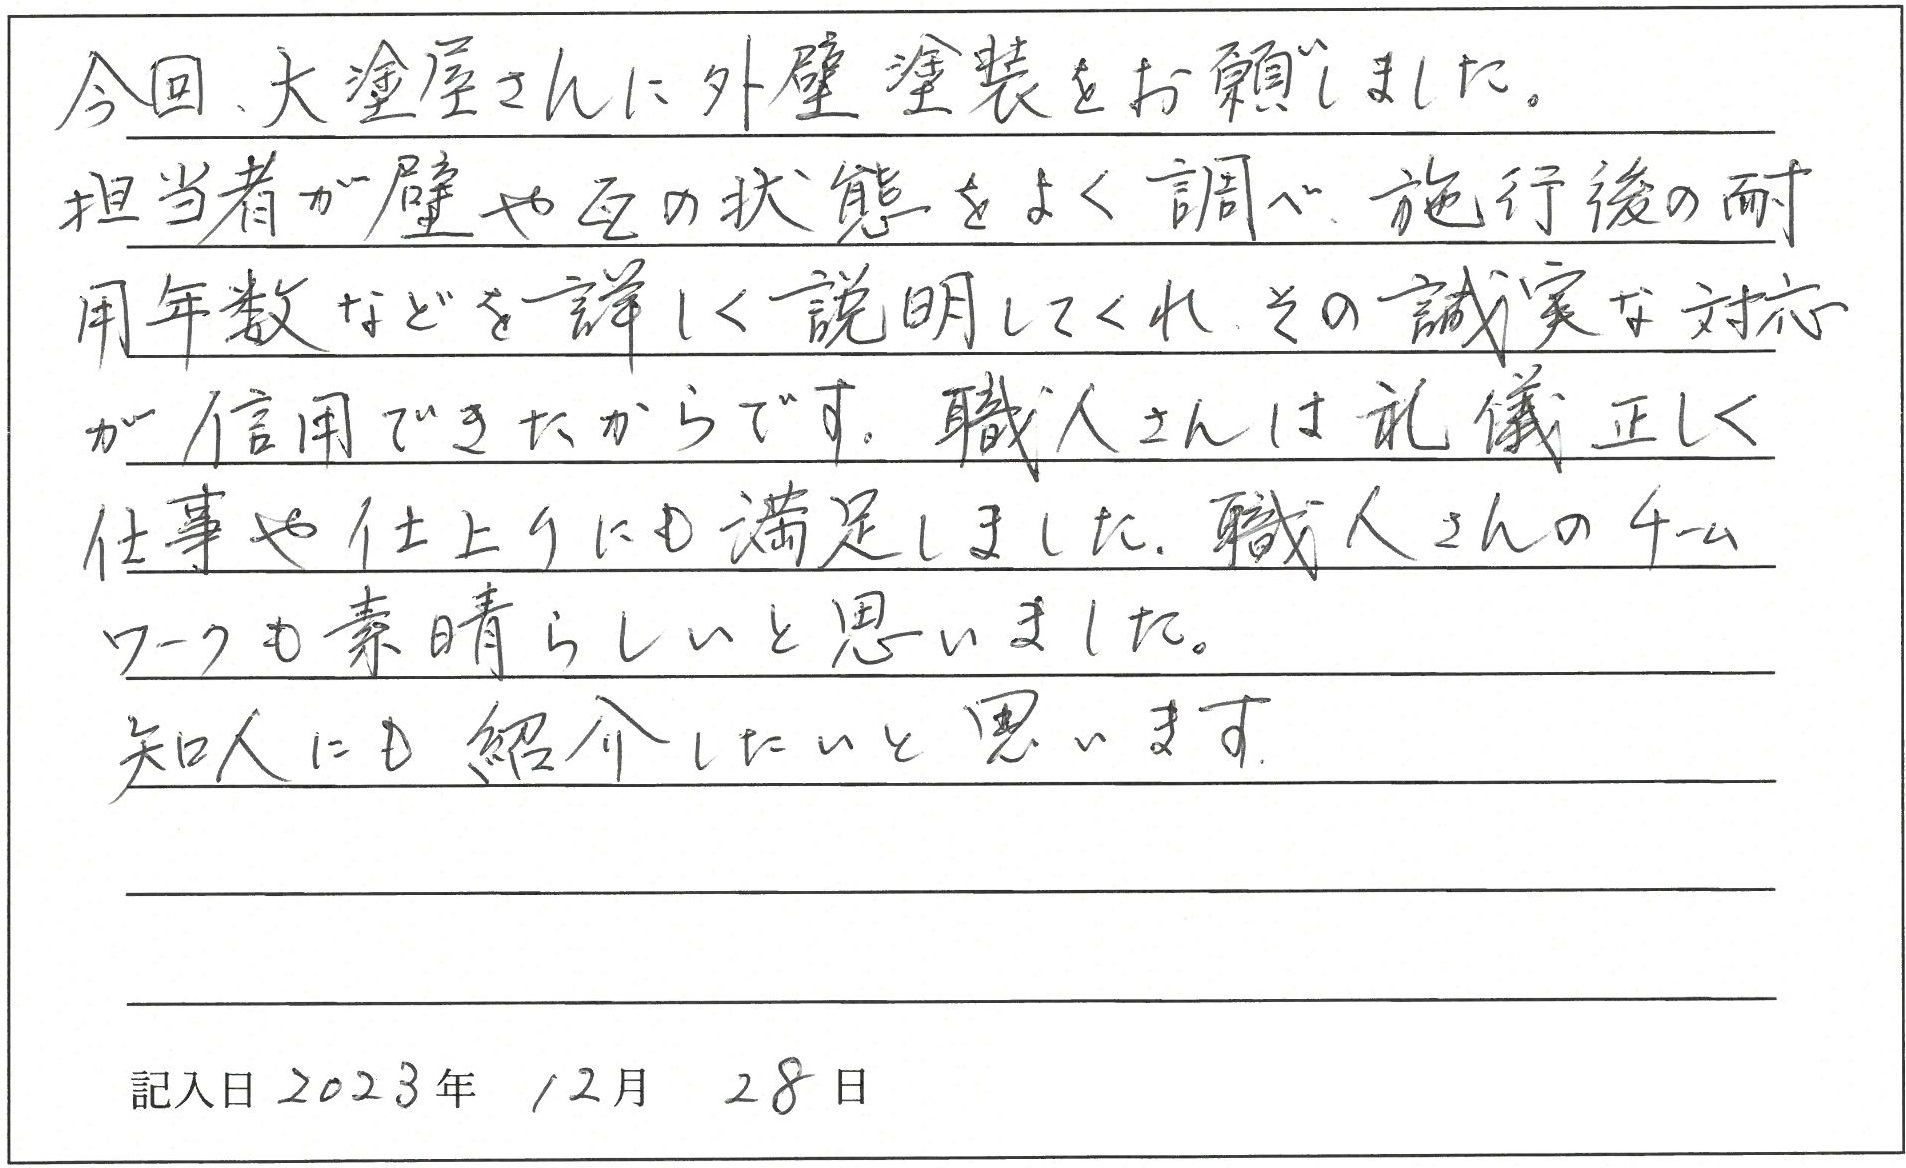 今回、大塗屋さんに外壁塗装をお願いしました。
担当者が壁や瓦の状態をよく調べ、施行後の耐
用年数などを詳しく説明してくれ、その誠実な対応
が信用できたからです。職人さんは礼儀正しく
仕事や仕上りにも満足しました。職人さんのチーム
ワークも素晴らしいと思いました。
知人にも紹介したいと思います。
記入日 2023年 12月 28日